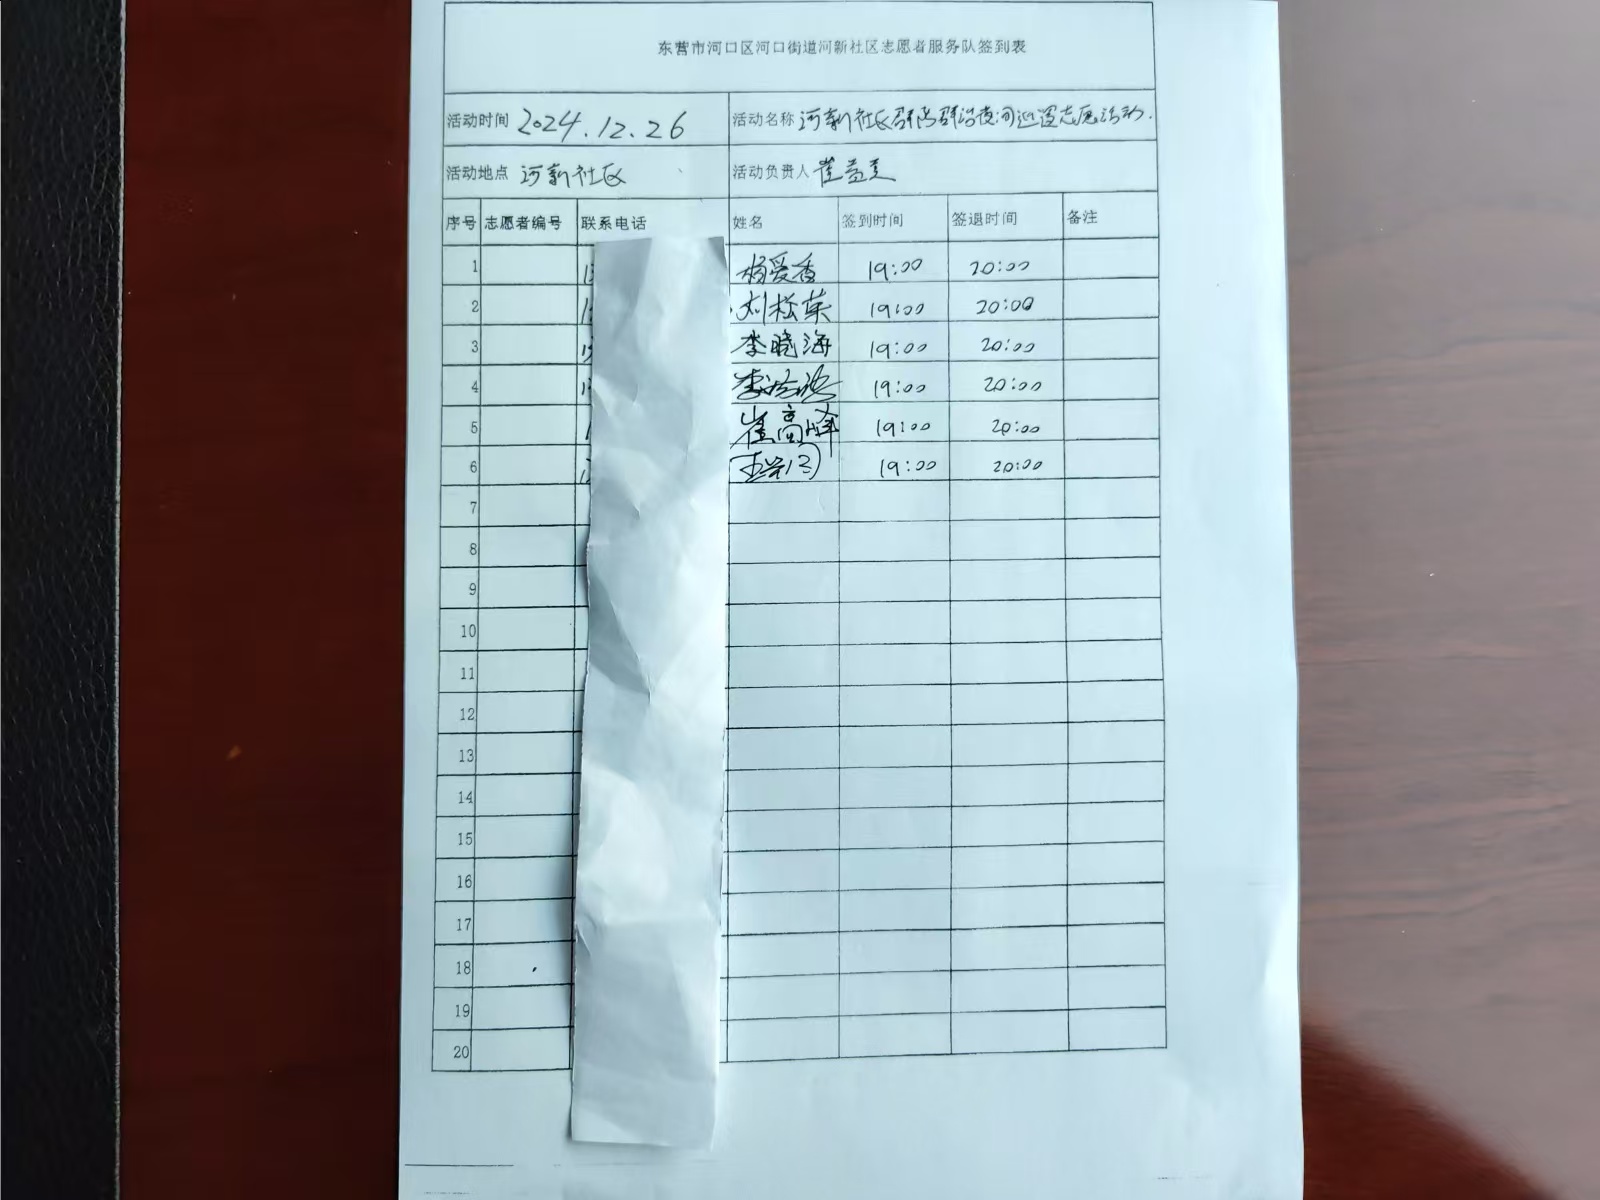 东营市河口区河口街道河新社区志愿者服务队签到表
活动时间 2024.12.26 活动名称 河新社区群防群治夜间巡逻志愿活动.
活动地点 河新社区 活动负责人 崔
序号 志愿者编号 联系电话 姓名 签到时间 签退时间 备注
1 杨爱香 19:00 20:00
2 刘松荣 19:00 20:00
3 李晓海 19:00 20:00
4 李 19:00 20:00
5 崔高峰 19:00 20:00
6 19:00 20:00
7
8
9
10
11
12
13
14
15
16
17
18
19
20